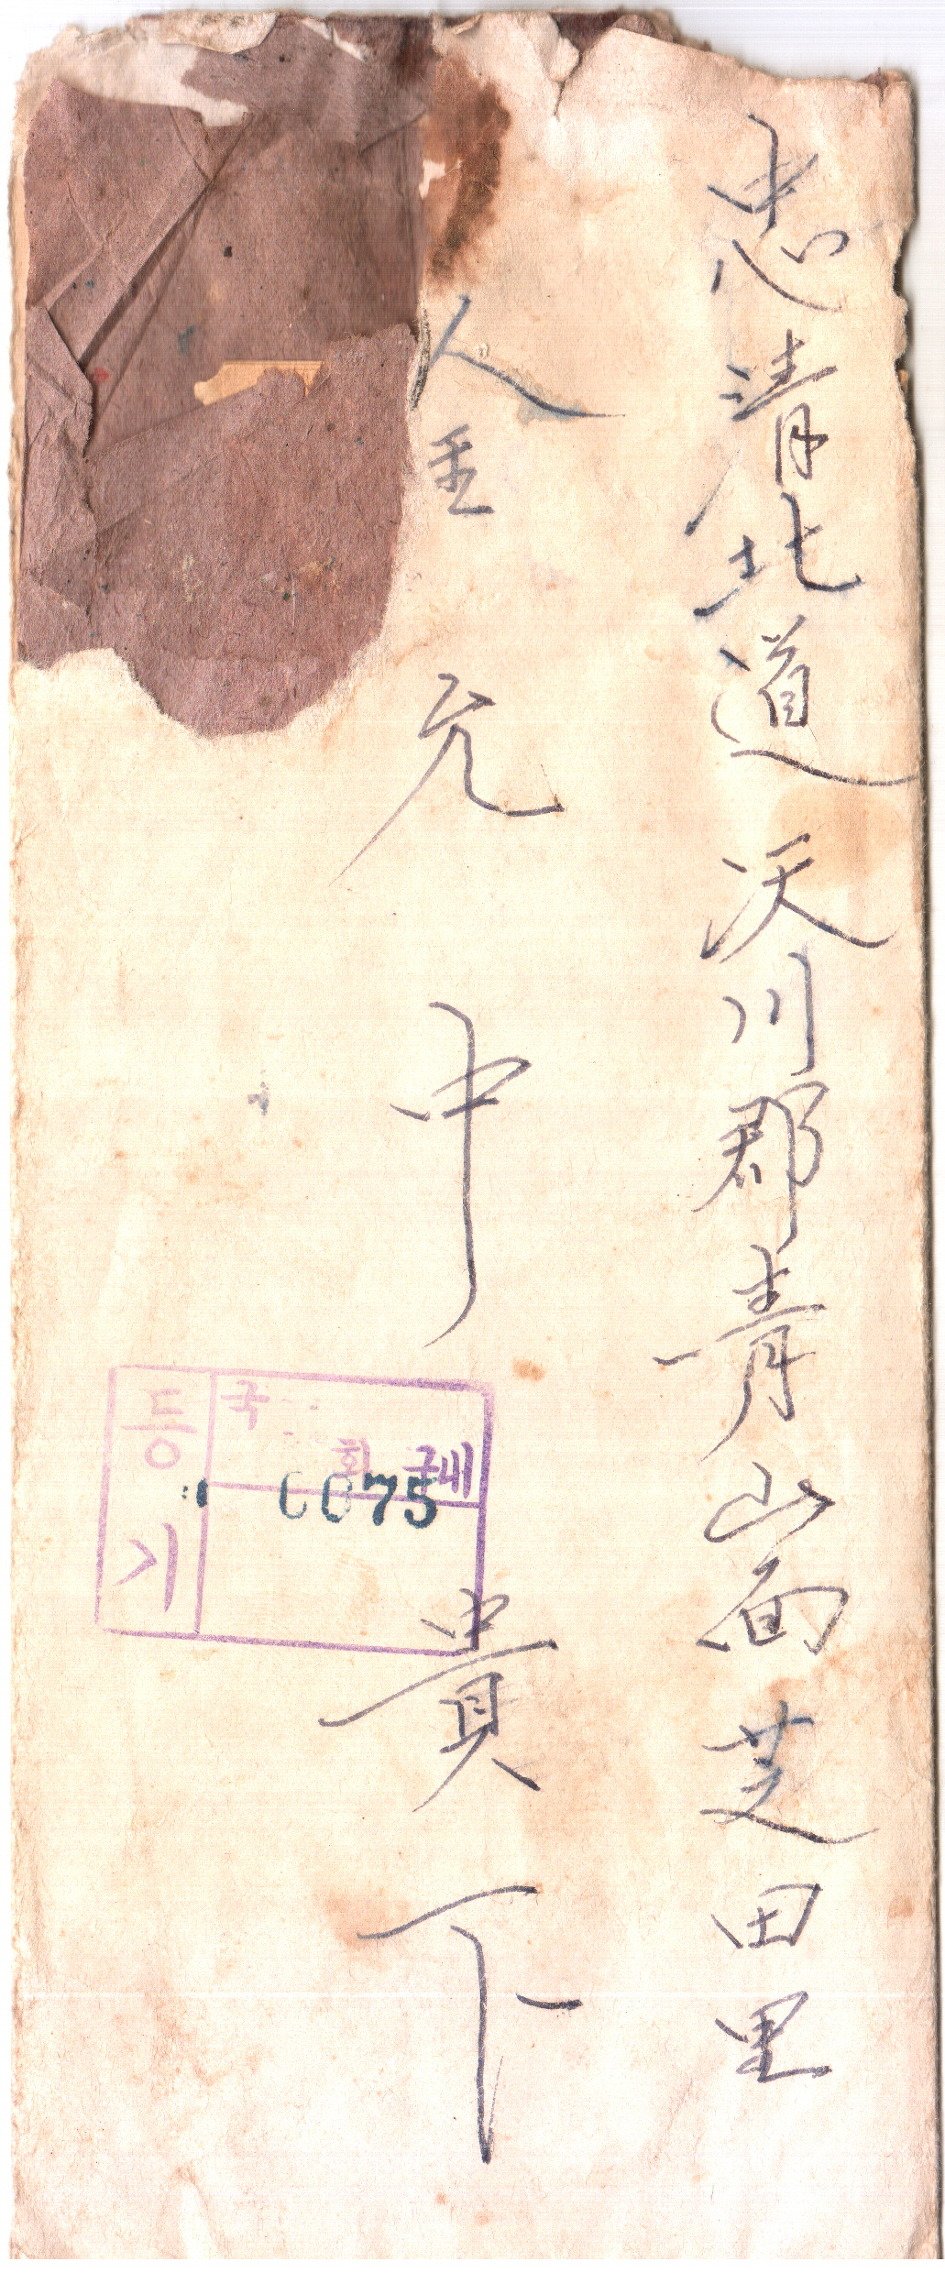 忠清北道 沃川郡 青山面 芝田里
金允中 貴下
등기
국회
국내
0075